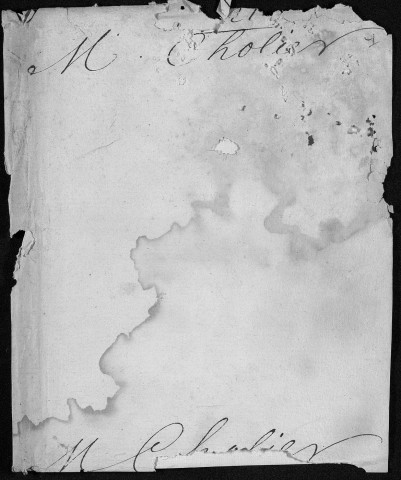 M. Cholier
M Cholier